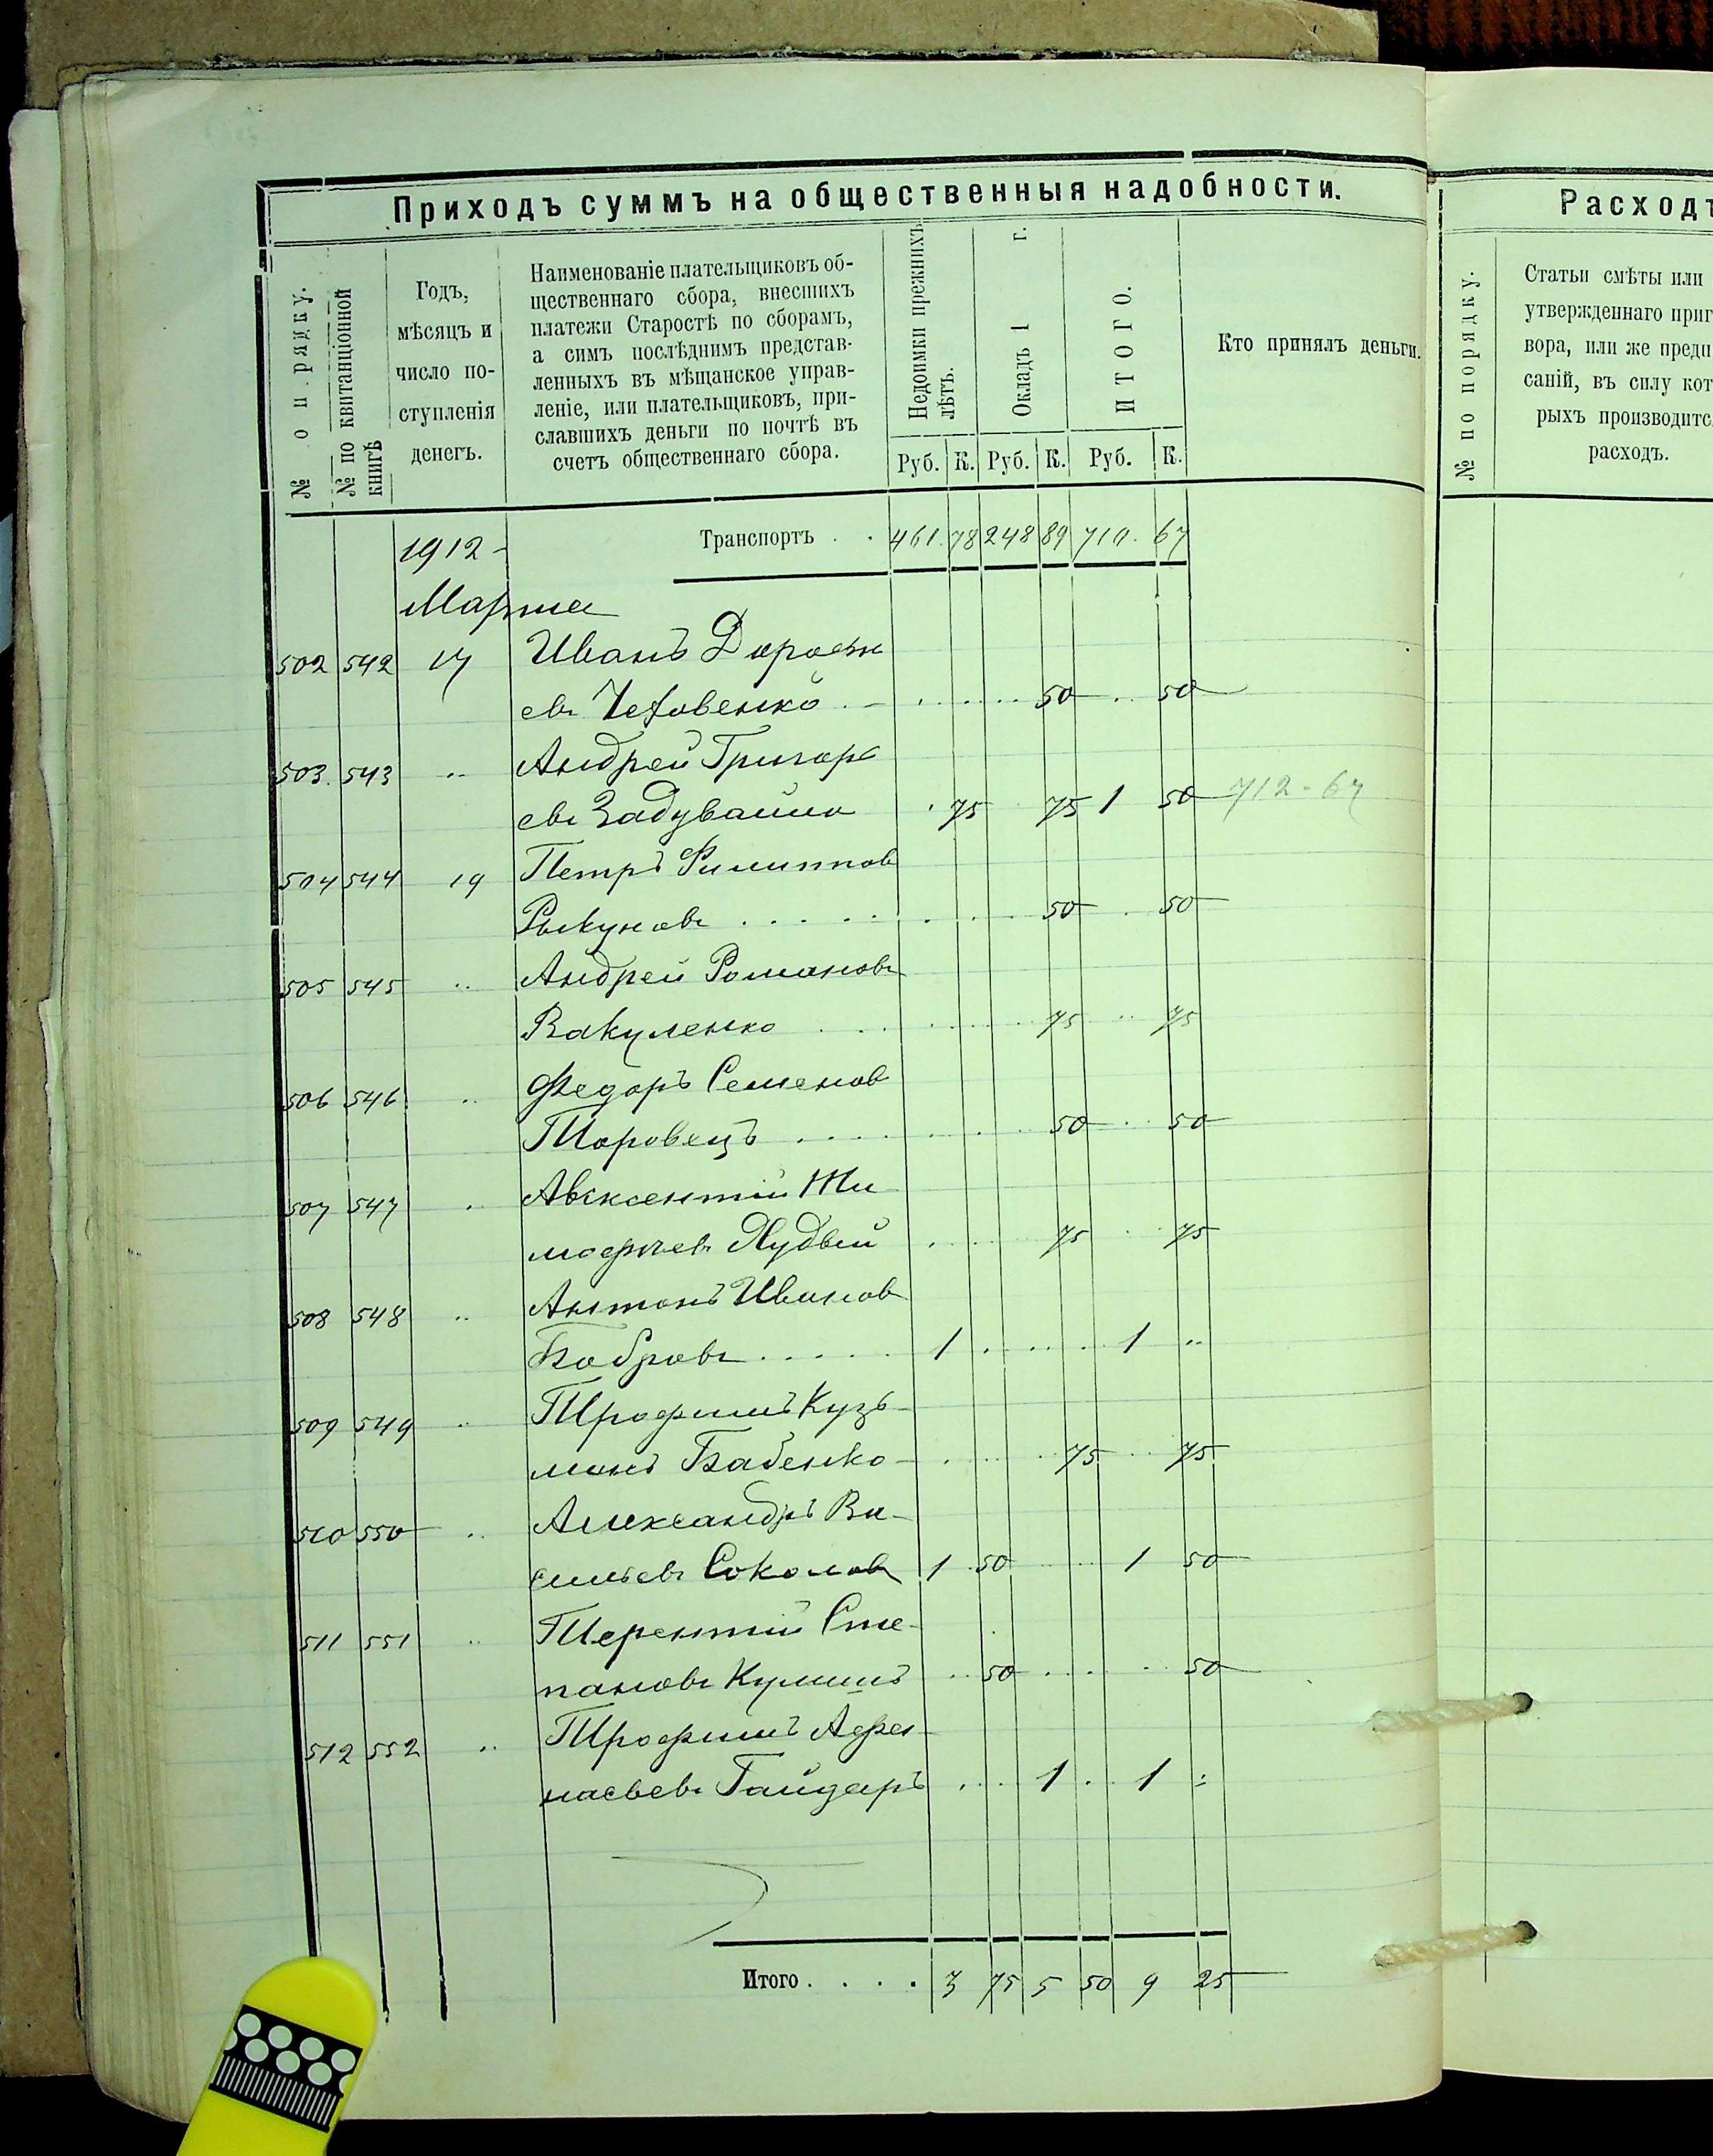 Приходъ суммъ на общественныя надобности.
№ по порядку.
№ по квитанціонной книгѣ
Годъ,
мѣсяцъ и
число по-
ступленія
денегъ.
Наименованіе плательщиковъ об-
щественнаго сбора, внесшихъ
платежи Старостѣ по сборамъ,
а симъ послѣднимъ представ-
ленныхъ въ мѣщанское управ-
леніе, или плательщиковъ, при-
славшихъ деньги по почтѣ въ
счетъ общественнаго сбора.
Недоимки прежнихъ лѣтъ.
Окладъ 1 г.
ИТОГО.
Кто принялъ деньги.
Руб. К. Руб. К. Руб. К.
1912 - Транспортъ . . 461 78 248 89 710 67
Марта
502 542 17 Иванъ Дорофе
евъ 50 50
503 543 .. Андрей Григорь
евъ Задувайло 75 75 1 50 712-67
504 544 19 Петръ Филиппов
Рыкуновъ 50 50
505 545 .. Андрей Романовъ
Вакуленко 75 75
506 546 .. Федоръ Семенов
Таровецъ 50 50
507 547 .. Авксентій Ти
мофеевъ Худвій 75 75
508 548 .. Антонъ Иванов
Бобровъ 1 1 ..
509 549 .. Трофимъ Кузь-
минъ Бабенко 75 75
510 550 .. Александръ Ва-
сильевъ Соколовъ 1 50 1 50
511 551 .. Терентій Сте-
пановъ Кулишъ 50 50
512 552 .. Трофимъ Афа-
насьевъ Гайдаръ 1 1
Итого . . . . 3 75 5 50 9 25
Расходъ
№ по порядку.
Статьи смѣты или
утвержденнаго приг
вора, или же предп
саній, въ силу кот
рыхъ производитс
расходъ.